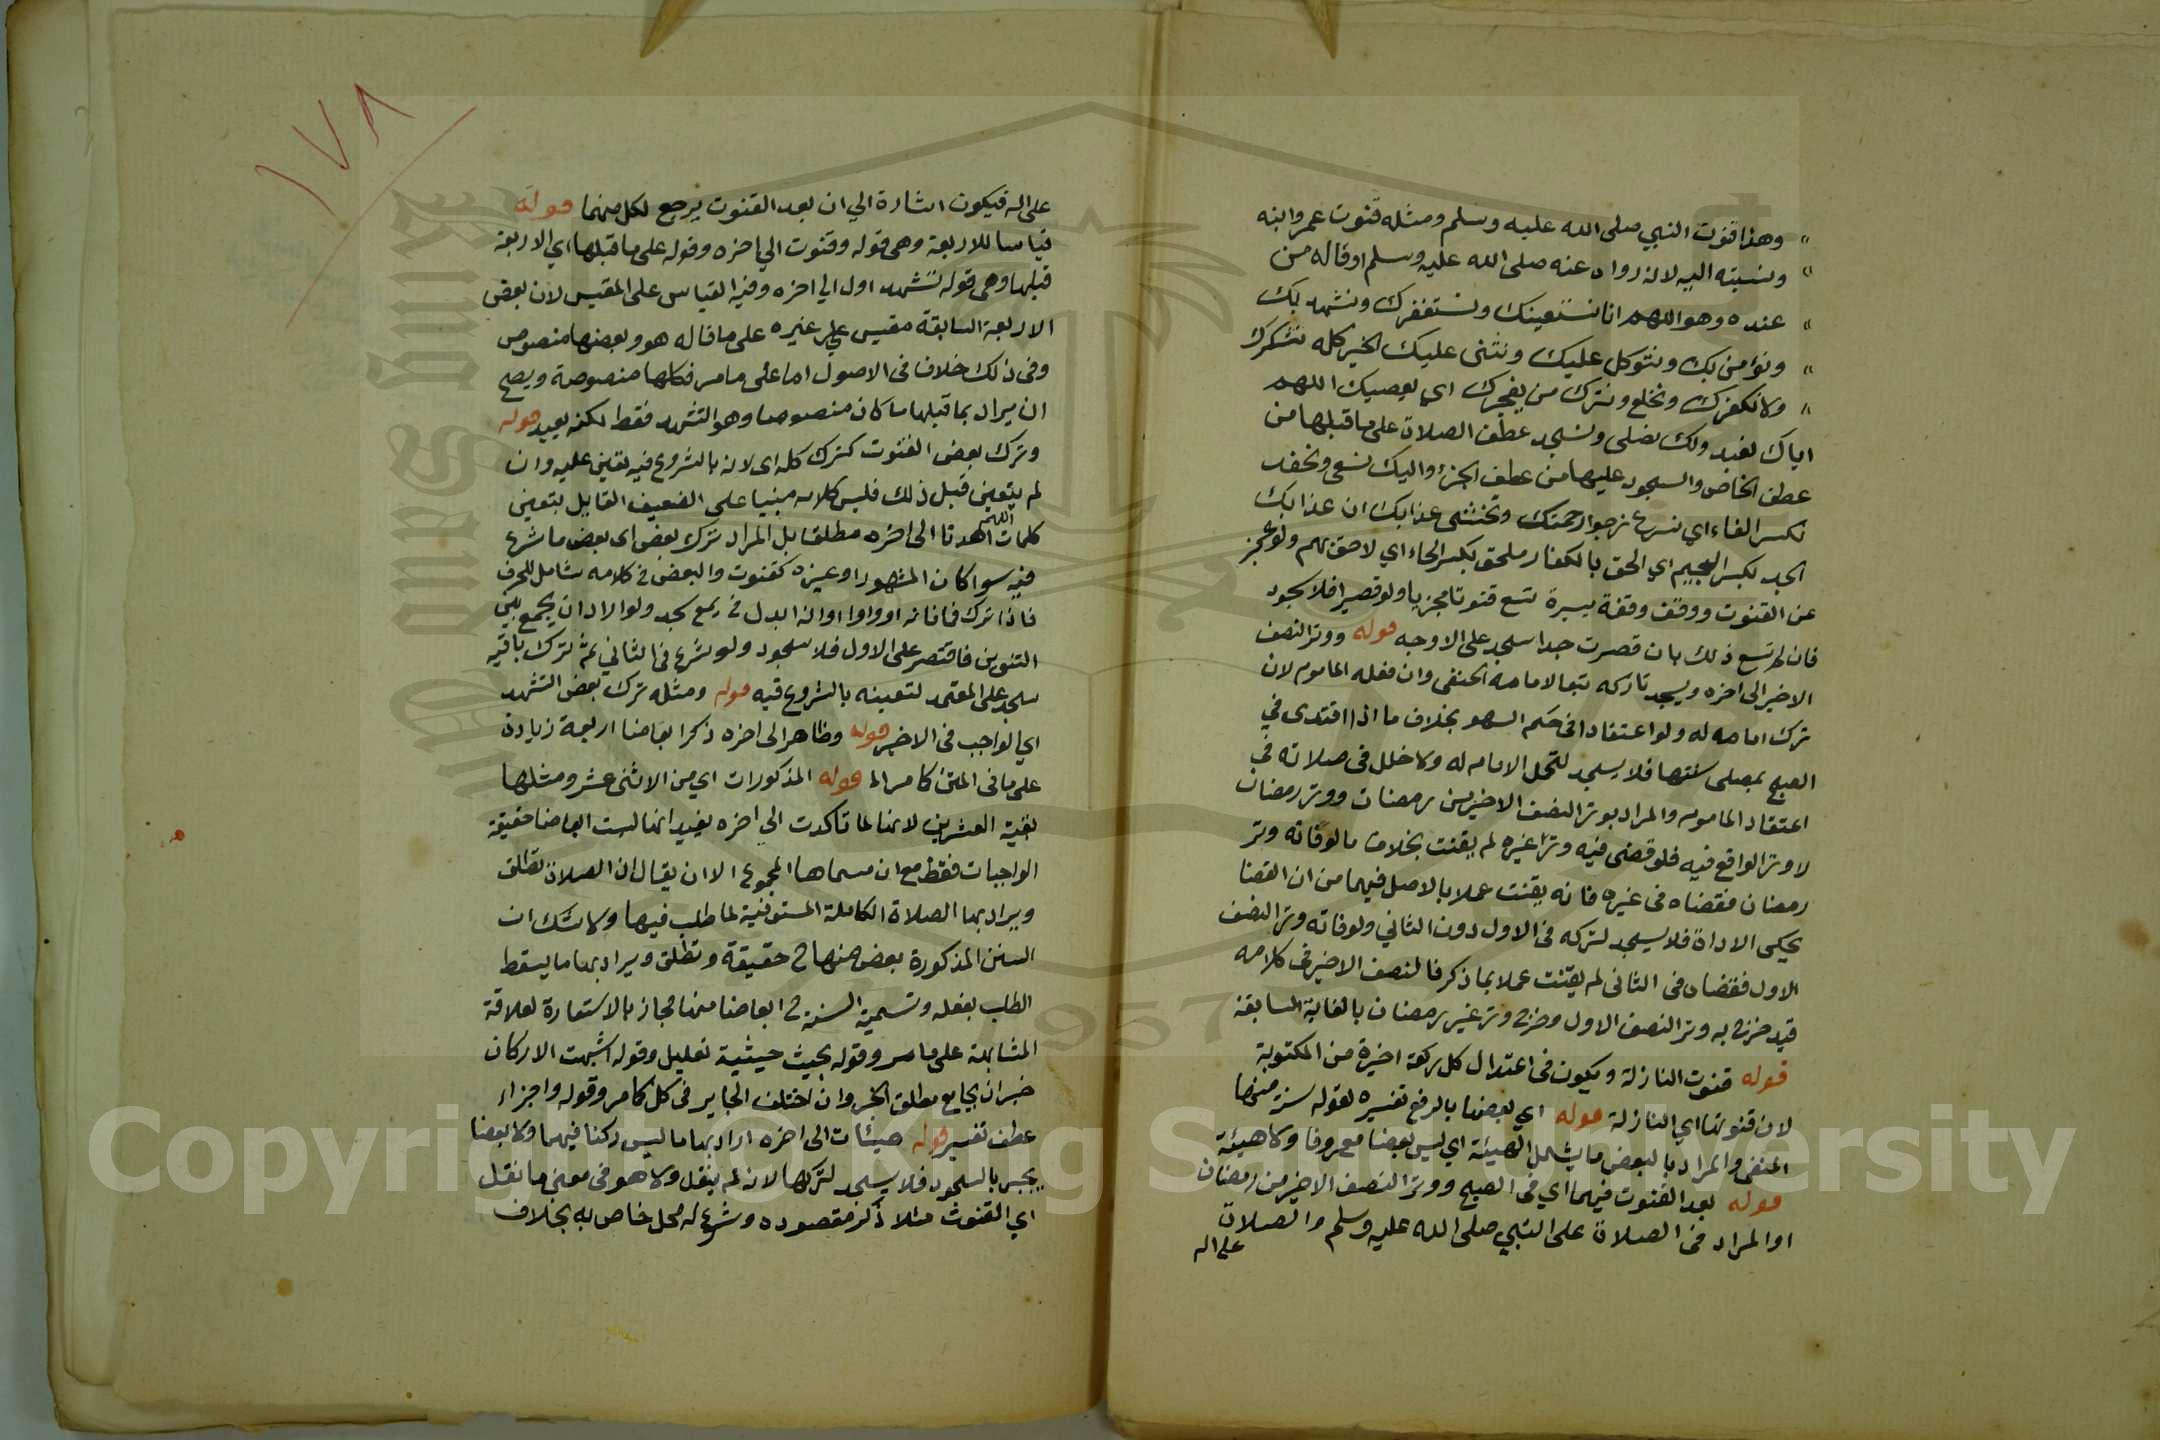 وهذا قنوت النبي صلى الله عليه وسلم ومثله قنوت عمر وابنه
ونسبته اليه لانه رواه عنه صلى الله عليه وسلم او قاله من
عنده وهو اللهم انا نستعينك ونستغفرك ونشهد بك
ونؤمن بك ونتوكل عليك ونثنى عليك الخير كله نشكرك
ولا نكفرك ونخلع ونترك من يفجرك اي يعصيك اللهم
اياك نعبد ولك نصلى ونسجد عطف الصلاة على ما قبلها من
عطف الخاص والسجود عليها من عطف الجزؤ واليك نسعى ونحفد
بكسر الفاء اي نسرع نرجوا رحمتك ونخشى عذابك ان عذابك
الجد بكسر الجيم اي الحق بالكفار ملحق بكسر الحاء اي لاحق بهم ولو عجز
عن القنوت ووقف وقفة يسيرة تسع قنوتا مجزيا ولو قصيرا فلا سجود
فان لم تسع ذلك بان قصرت جدا سجد على الاوجه قوله ووتر النصف
الاخير الى اخره ويسجد تاركه تبعا لامامه الحنفى وان فعله الماموم لان
ترك امامه له ولو اعتقادا في حكم السهو بخلاف ما اذا اقتدى في
الصبح بمصلى سنتها فلا يسجد لتحمل الامام له ولا خلل في صلاته في
اعتقاد الماموم والمراد بوتر النصف الاخير من رمضان ووتر رمضان
لا وتر الواقع فيه فلو قضى فيه وتر غيره لم يقنت بخلاف ما لو فاته وتر
رمضان فقضاه في غيره فانه يقنت عملا بالاصل فيهما من ان القضا
يحكى الاداة فلا يسجد لتركه في الاول دون الثاني ولو فاته وتر النصف
الاول فقضاه في الثاني لم يقنت عملا بما ذكر فالنصف الاخير في كلامه
قيد خرج به وتر النصف الاول وخرج وتر غير رمضان بالغاية السابقة
قوله قنوت النازلة ويكون في اعتدال كل ركعة اخيرة من المكتوبة
لان قنوتها اي النازلة قوله اي بعضها بالرفع تفسيره لقوله سنة منها
المنفى والمراد بالبعض ما يشمل الهيئة اي ليس بعضا معروفا ولا هيئة
قوله بعد القنوت فيهما اي في الصبح ووتر النصف الاخير من رمضان
او المراد في الصلاة على النبي صلى الله عليه وسلم والصلاة
على اله
١٧٨
على اله فيكون اشارة الي ان بعد القنوت يرجع لكل منهما قوله
قياسا للاربعة وهى قوله وقنوت الي اخره وقوله على ما قبلها اي الاربعة
قبلها وهى قوله تشهد اول الي اخره وفيه القياس على المقيس لان بعض
الاربعة السابقة مقيس على غيره على ما قاله هو وبعضها منصوص
وفى ذلك خلاف في الاصول اما على ما مر فكلها منصوصة ويصح
ان يراد بما قبلها ما كان منصوصا وهو التشهد فقط لكنه بعيد قوله
وترك بعض القنوت كترك كله اى لانه بالشروع فيه تعين عليه وان
لم يتعين قبل ذلك فليس كلامه مبنيا على الضعيف القايل بتعين
كلمات اللهم اهدنا الى اخره مطلقا بل المراد ترك بعض اى بعض ما شرع
فيه سوا كان المشهور او غيره كقنوت والبعض في كلامه شامل للحرف
فاذا ترك فا فانه او واوا وانه ابدل في بمع سجد ولو اراد ان يجمع بين
القنوتين فاقتصر على الاول فلا سجود ولو شرع في الثاني ثم ترك باقيه
سجد على المعتمد لتعينه بالشروع فيه قوله ومثله ترك بعض التشهد
اي الواجب في الاخير قوله وظاهر الى اخره ذكر ابعاضا اربعة زيادة
على ما في المتن كما مر الم قوله المذكورات اي من الاثنى عشر ومثلها
بقية العشرين لانها لما تاكدت الي اخره يفيد انها ليست ابعاضا حقيقة
الواجبات فقط مع ان مسماها المجموع الا ان يقال ان الصلاة تطلق
ويراد بها الصلاة الكاملة المستوفية لما طلب فيها ولا شك ان
السنن المذكورة بعض منها ح حقيقة وتطلق ويراد بها ما يسقط
الطلب بفعله وتسمية السنة ح ابعاضا منها مجاز بالاستعارة لعلاقة
المشابهة على ما مر وقوله بحيث حيثية تعليل وقوله اشبهت الاركان
خبر ان بجامع مطلق الجبر وان اختلف الجاير في كل كما مر وقوله واجزاء
عطف تفسير قوله هيئات الى اخره اراد بها ما ليس ركنا فيهما ولا بعضا
يجبر بالسجود فلا يسجد لتركها لانه لم ينقل ولا هو في معنى ما نقل
اي القنوت مثلا ذكر مقصوده وشرع له محل خاص به بخلاف
Copyright © King Saud University
King Saud University
1957